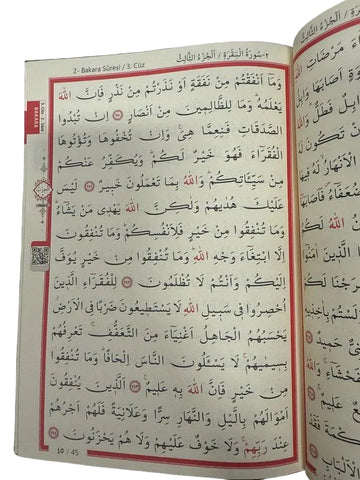 ٢- سُورَةُ الْبَقَرَةِ / اَلْجُزْءُ الثَّالِثُ
2- Bakara Sûresi / 3. Cüz
وَمَٓا اَنْفَقْتُمْ مِنْ نَفَقَةٍ اَوْ نَذَرْتُمْ مِنْ نَذْرٍ فَاِنَّ اللّٰهَ
يَعْلَمُهُۜ وَمَا لِلظَّالِمٖينَ مِنْ اَنْصَارٍ ﴿٢٧٠﴾ اِنْ تُبْدُوا
الصَّدَقَاتِ فَنِعِمَّا هِيَۚ وَاِنْ تُخْفُوهَا وَتُؤْتُوهَا
الْفُقَرَٓاءَ فَهُوَ خَيْرٌ لَكُمْۜ وَيُكَفِّرُ عَنْكُمْ
مِنْ سَيِّـَٔاتِكُمْۜ وَاللّٰهُ بِمَا تَعْمَلُونَ خَبٖيرٌ ﴿٢٧١﴾ لَيْسَ
عَلَيْكَ هُدٰيهُمْ وَلٰكِنَّ اللّٰهَ يَهْدٖي مَنْ يَشَٓاءُۜ
وَمَا تُنْفِقُوا مِنْ خَيْرٍ فَلِاَنْفُسِكُمْۜ وَمَا تُنْفِقُونَ
اِلَّا ابْتِغَٓاءَ وَجْهِ اللّٰهِۜ وَمَا تُنْفِقُوا مِنْ خَيْرٍ يُوَفَّ
اِلَيْكُمْ وَاَنْتُمْ لَا تُظْلَمُونَ ﴿٢٧٢﴾ لِلْفُقَرَٓاءِ الَّذٖينَ
اُحْصِرُوا فٖي سَبٖيلِ اللّٰهِ لَا يَسْتَطٖيعُونَ ضَرْبًا فِي الْاَرْضِۘ
يَحْسَبُهُمُ الْجَاهِلُ اَغْنِيَٓاءَ مِنَ التَّعَفُّفِۚ تَعْرِفُهُمْ
بِسٖيمٰيهُمْۚ لَا يَسْـَٔلُونَ النَّاسَ اِلْحَافًاۜ وَمَا تُنْفِقُوا
مِنْ خَيْرٍ فَاِنَّ اللّٰهَ بِهٖ عَلٖيمٌ ﴿٢٧٣﴾ اَلَّذٖينَ يُنْفِقُونَ
اَمْوَالَهُمْ بِالَّيْلِ وَالنَّهَارِ سِرًّا وَعَلَانِيَةً فَلَهُمْ اَجْرُهُمْ
عِنْدَ رَبِّهِمْۚ وَلَا خَوْفٌ عَلَيْهِمْ وَلَا هُمْ يَحْزَنُونَ
٤٥ / 45
BAKARA